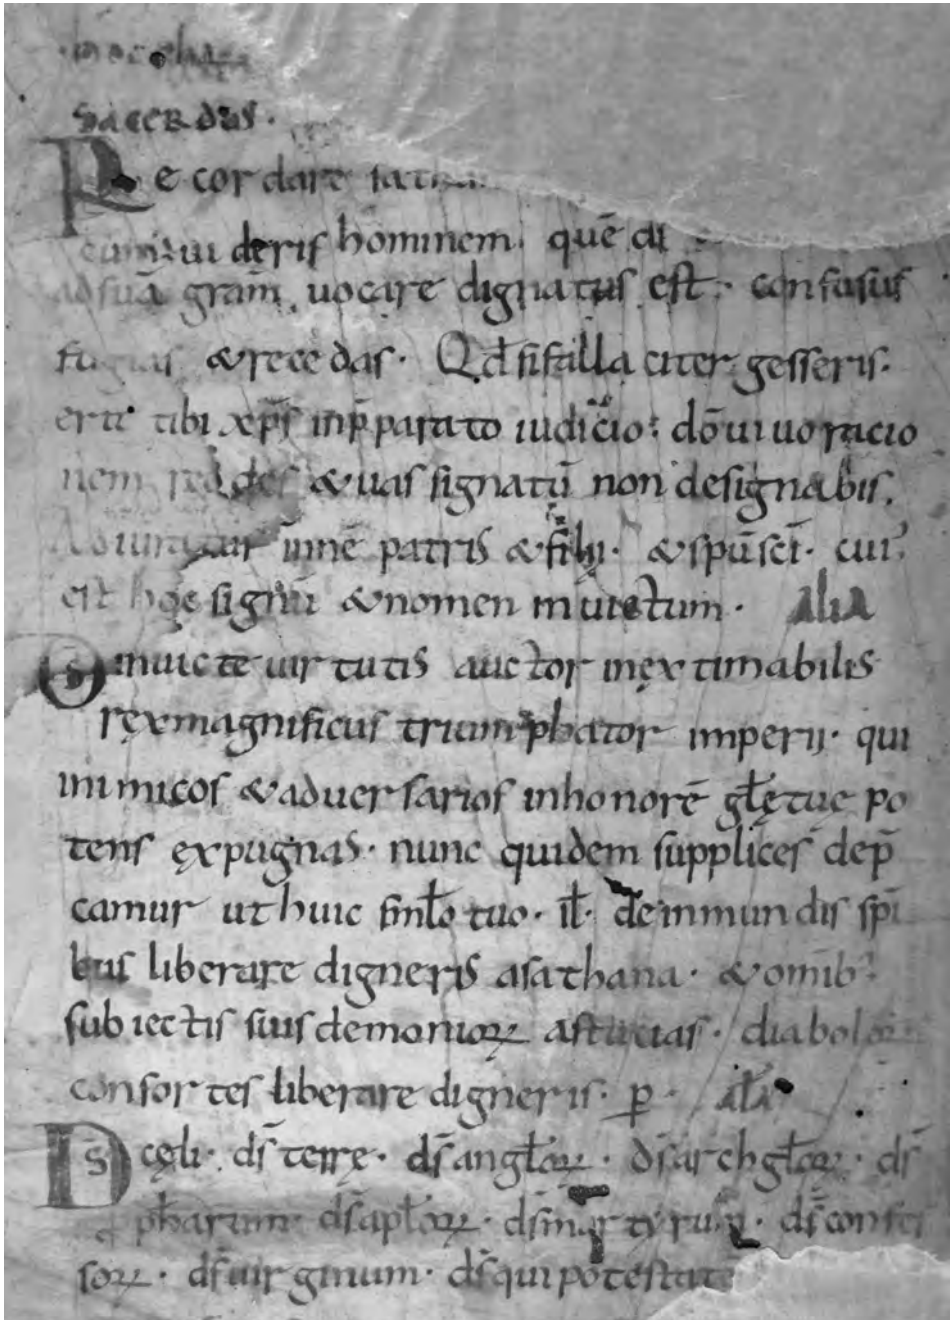 sacerdus ·
Recordare satha
cumq; uideris hominem · quē dī
ad suā grām uocare dignatus est · confusus
fugias & recedas · Qd̄ si fallaciter gesseris ·
erit tibi xp̄s in p̄parato iudicio : dō uiuo racio
nem reddes & uas signatū non designabis ·
Adiuratur in nn̄e patris & filii · & sp̄u sc̄i · cuī
est hoc signū & nomen inuictum · alia
Ds̄ inuicte uirtutis auctor inextimabilis
rex magnificus triumphator imperii · qui
inimicos & aduersarios in honorē gl̄ę tuę po
tens ęxpugnas · nunc quidem supplices dep̄
camur ut huic fml̄o tuo · il̄l · de inmundis sp̄i
bus liberare digneris a sathana · & omīb;
subiectis suis demonioꝝ astucias · diaboloꝝ
consortes liberare digneris · p̄ · al̄a
Ds̄ cęli · ds̄ terrę · ds̄ angl̄oꝝ · ds̄ archgl̄oꝝ · ds̄
pħarum · ds̄ apl̄oꝝ · ds̄ martyrum · ds̄ confes
soꝝ · ds̄ uirginum · ds̄ qui potestate